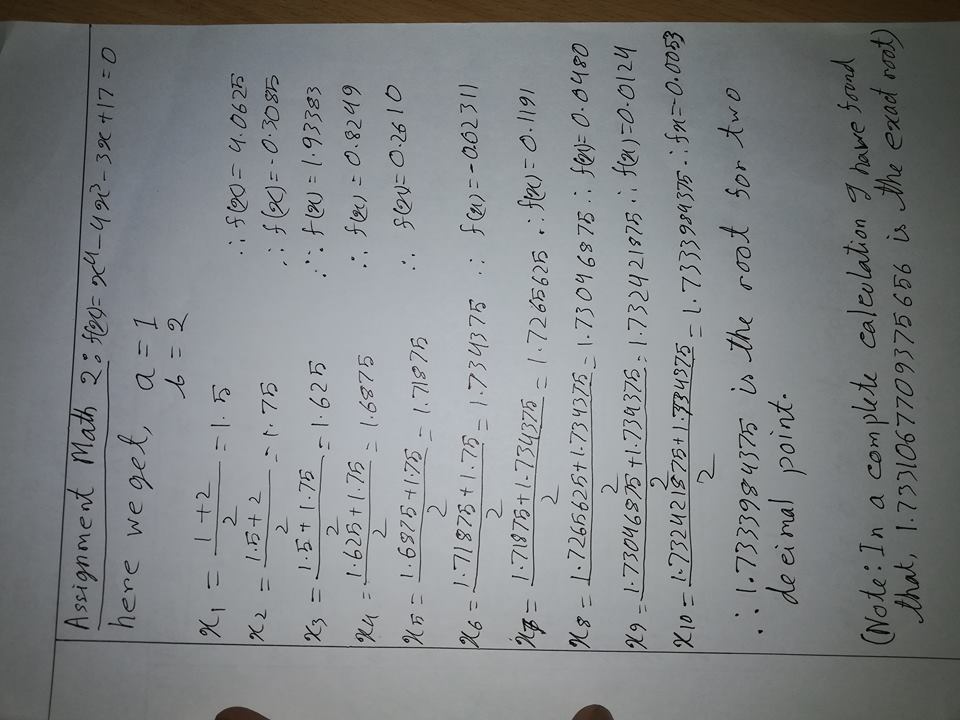 Assignment Math 2: f(x) = x⁴ - 4x³ - 3x + 17 = 0
here we get, a = 1
b = 2
x₁ = (1 + 2)/2 = 1.5 ∴ f(x) = 4.0625
x₂ = (1.5 + 2)/2 = 1.75 ∴ f(x) = -0.3085
x₃ = (1.5 + 1.75)/2 = 1.625 ∴ f(x) = 1.93383
x₄ = (1.625 + 1.75)/2 = 1.6875 ∴ f(x) = 0.8249
x₅ = (1.6875 + 1.75)/2 = 1.71875 ∴ f(x) = 0.2610
x₆ = (1.71875 + 1.75)/2 = 1.734375 ∴ f(x) = -0.02311
x₇ = (1.71875 + 1.734375)/2 = 1.7265625 ∴ f(x) = 0.1191
x₈ = (1.7265625 + 1.734375)/2 = 1.73046875 ∴ f(x) = 0.0480
x₉ = (1.73046875 + 1.734375)/2 = 1.732421875 ∴ f(x) = 0.0124
x₁₀ = (1.732421875 + 1.734375)/2 = 1.7333984375 ∴ fx = -0.0053
∴ 1.7333984375 is the root for two
decimal point.
(Note: In a complete calculation I have found
that, 1.7331067709375656 is the exact root)